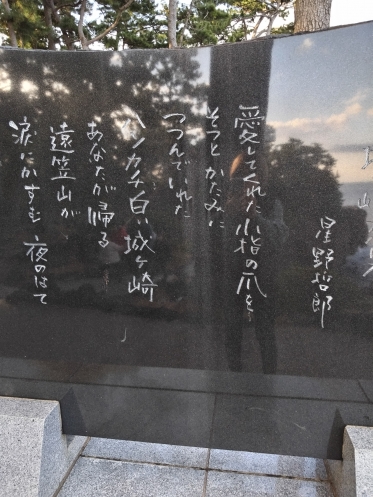 星野哲郎
愛してくれた小指の爪を
そっとかたみに
つつんでいれた
ハンカチ白い城ヶ崎
あなたが帰る
遠笠山が
涙にかすむ夜のはて